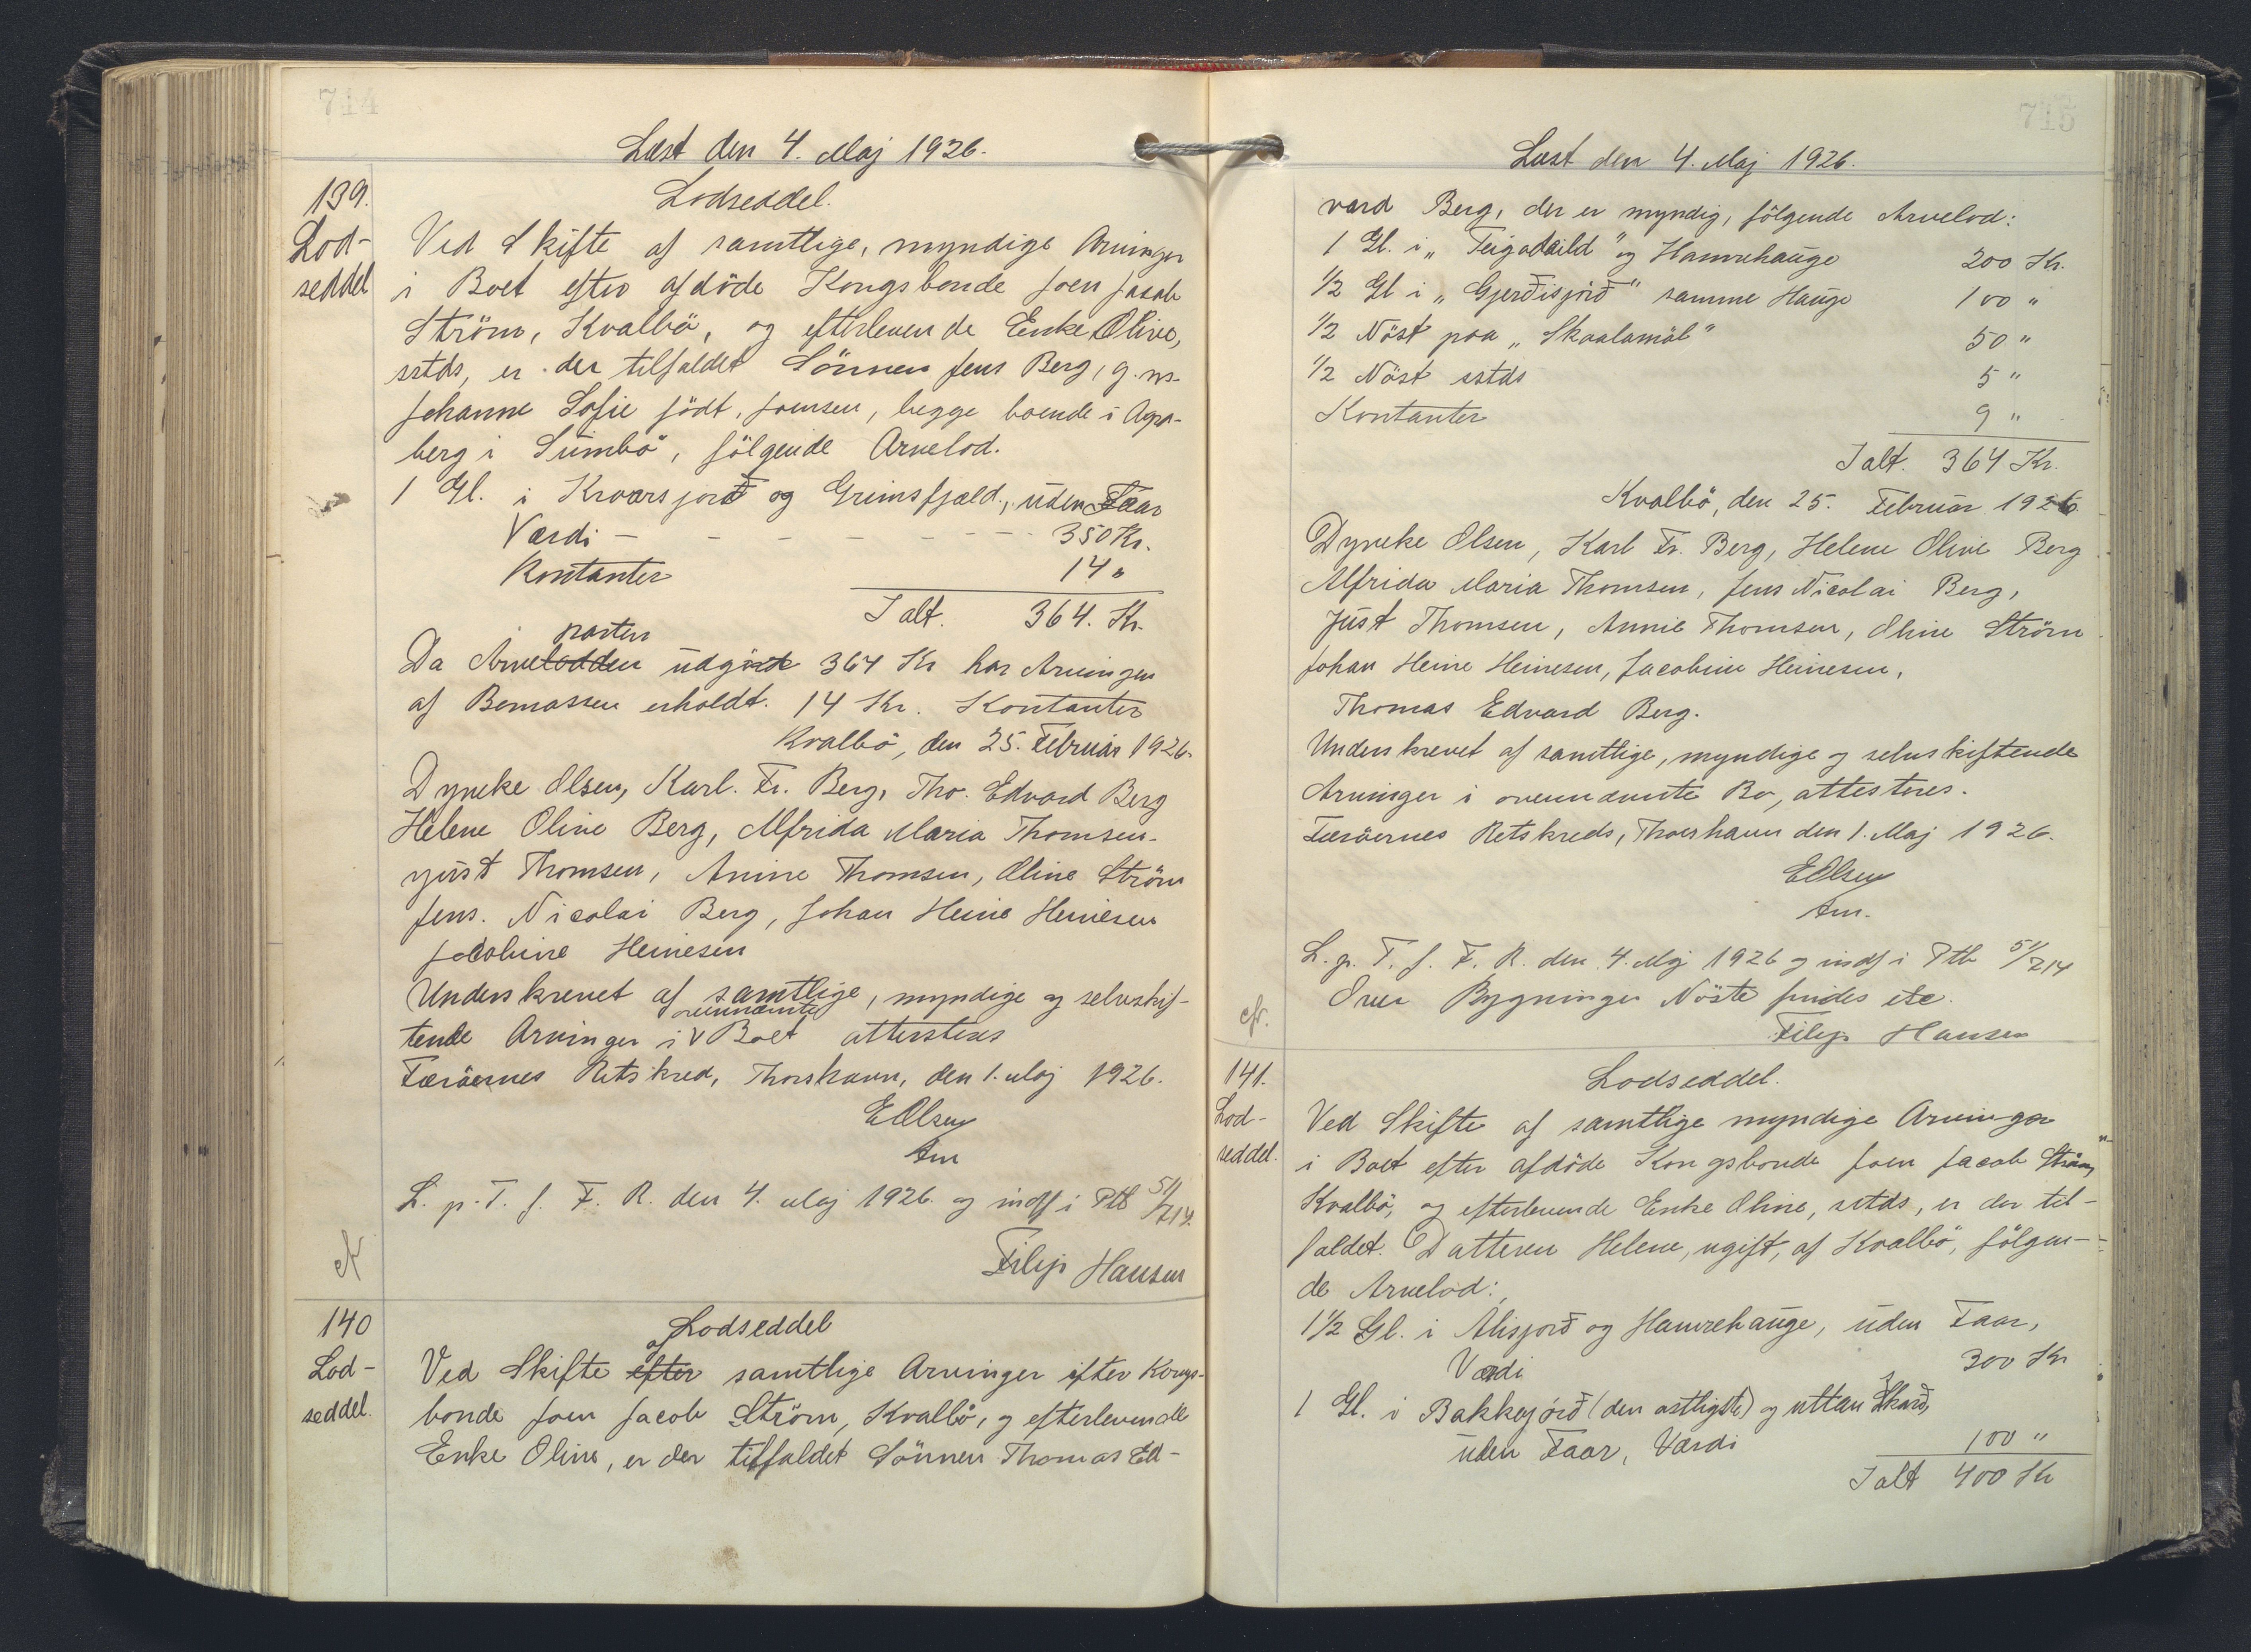 744
Læst den 4. Maj 1926.
139.
Lod-
seddel
Lodseddel.
Ved Skifte af samtlige, myndige Arvinger
i Boet efter afdöde Kongsbonde Joen Jacob
Ström, Kvalbö, og efterlevende Enke Oline,
sstds, er der tilfaldet Sönnen Jens Berg, g. m.
Johanne Sofie födt, Joensen, begge boende i Agra-
berg i Sumbö, fölgende Arvelod.
1 Gl. i Kvarsjord og Grimsfjæld, uden Faar
Værdi - - - - - - - 350 Kr.
Kontanter 14 "
I alt. 364. Kr.
parten
Da Arvelodden udgör 364 Kr har Arvingen
af Bomassen erholdt. 14 Kr. Kontanter
Kvalbö, den 25. Februar 1926.
Dyneke Olsen, Karl. Fr. Berg, Tho. Edvard Berg
Helene Oline Berg, Alfrida Maria Thomsen.
Just Thomsen, Annine Thomsen, Oline Ström
Jens. Nicolai Berg, Johan Heine Heinesen
Jacobine Heinesen
Underskrevet af samtlige, myndige og selvskif-
ovennævnte
tende Arvinger i V Boet attesteres
Færöernes Retskred, Thorshavn, den 1. Maj 1926.
EOlsen
fm
L. p. T. f. F. R. den 4. Maj 1926. og indf i Ptb 51/714.
Filip Hansen
cfr
140
Lod-
seddel.
Lodseddel
af
Ved Skifte efter samtlige Arvinger efter Kongs-
bonde Joen Jacob Ström, Kvalbö, og efterlevende
Enke Oline, er der tilfaldet Sönnen Thomas Ed-
715
Læst den 4. Maj 1926.
vard Berg, der er myndig, fölgende Arvelod:
1 Gl. i "Teigadeild" og Hamrehauge 200 Kr.
1/2 Gl i "Gjerdisjörd" samme Hauge 100 "
1/2 Nöst paa "Skaalamöl" 50 "
1/2 Nöst sstds 5 "
Kontanter 9 "
I alt. 364 Kr.
Kvalbö, den 25. Februar 1926
Dyneke Olsen, Karl Fr. Berg, Helene Oline Berg
Alfrida Maria Thomsen, Jens Nicolai Berg,
Just Thomsen, Annie Thomsen, Oline Ström
Johan Heine Heinesen, Jacobine Heinesen,
Thomas Edvard Berg.
Underskrevet af samtlige, myndige og selvskiftende
Arvinger i ovennævnte Bo, attesteres.
Færöernes Retskreds, Thorshavn den 1. Maj 1926.
EOlsen
fm.
L. p. T. f. F. R. den 4. Maj 1926 og indf i Ptb 51/714
Over Bygningen Nöste findes ite.
Filip Hansen
cfr.
141.
Lod-
seddel.
Lodseddel.
Ved Skifte af samtlige myndige Arvinger
i Boet efter afdöde Kongsbonde Joen Jacob Ström,
Kvalbö, og efterlevende Enke Oline, sstds, er der til-
faldet. Datteren Helene, ugift, af Kvalbö, fölgen-
de Arvelod:
1 1/2 Gl. i Alisjord og Hamrehauge, uden Faar,
Værdi 300 Kr
1 Gl. i Bakkejörd (den østligste) og uttan Skard,
uden Faar, Værdi 100 "
I alt 400 Kr